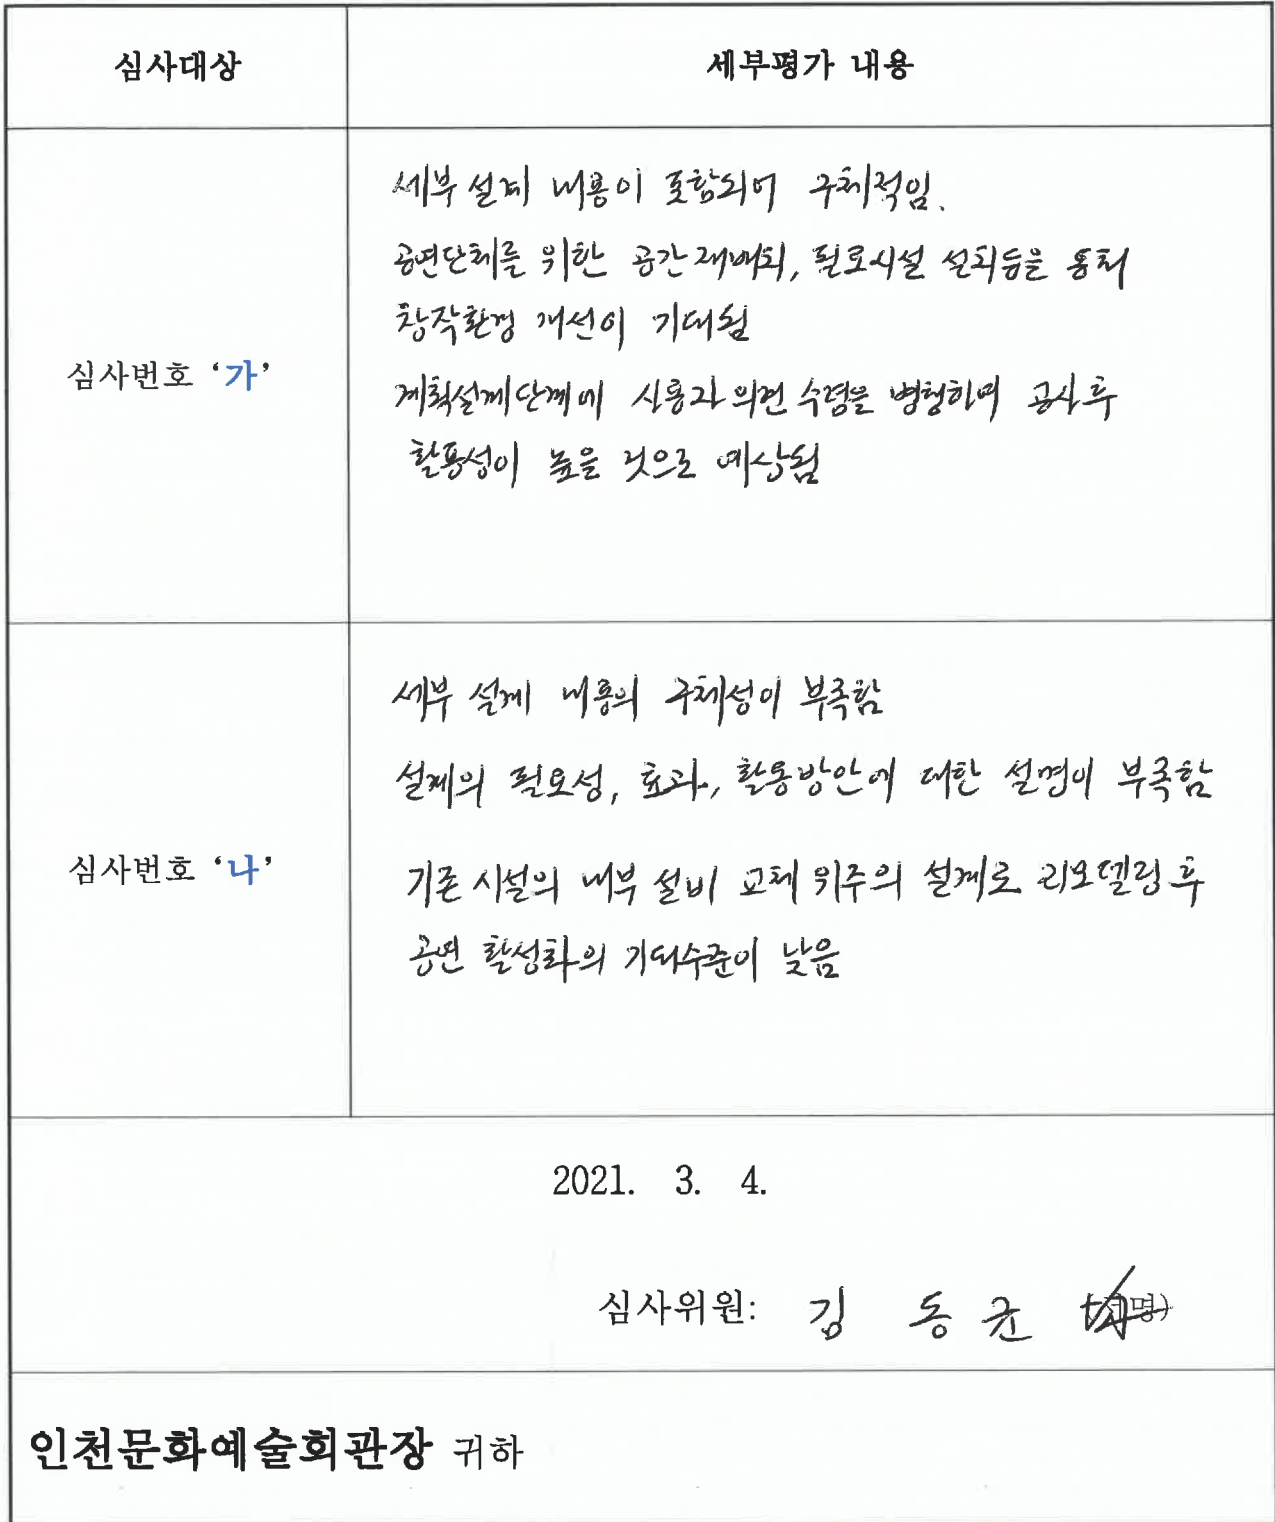 심사대상
세부평가 내용
심사번호 '가'
세부 설계 내용이 포함되어 구체적임.
공연단체를 위한 공간재배치, 필요시설 설치등을 통해
창작환경 개선이 기대됨
계획설계단계에 사용자 의견 수렴을 병행하며 공사후
활용성이 높을 것으로 예상됨
심사번호 '나'
세부 설계 내용의 구체성이 부족함
설계의 필요성, 효과, 활용방안에 대한 설명이 부족함
기존 시설의 내부 설비 교체 위주의 설계로 리모델링 후
공연 활성화의 기대수준이 낮음
2021. 3. 4.
심사위원: 김 동균
인천문화예술회관장 귀하